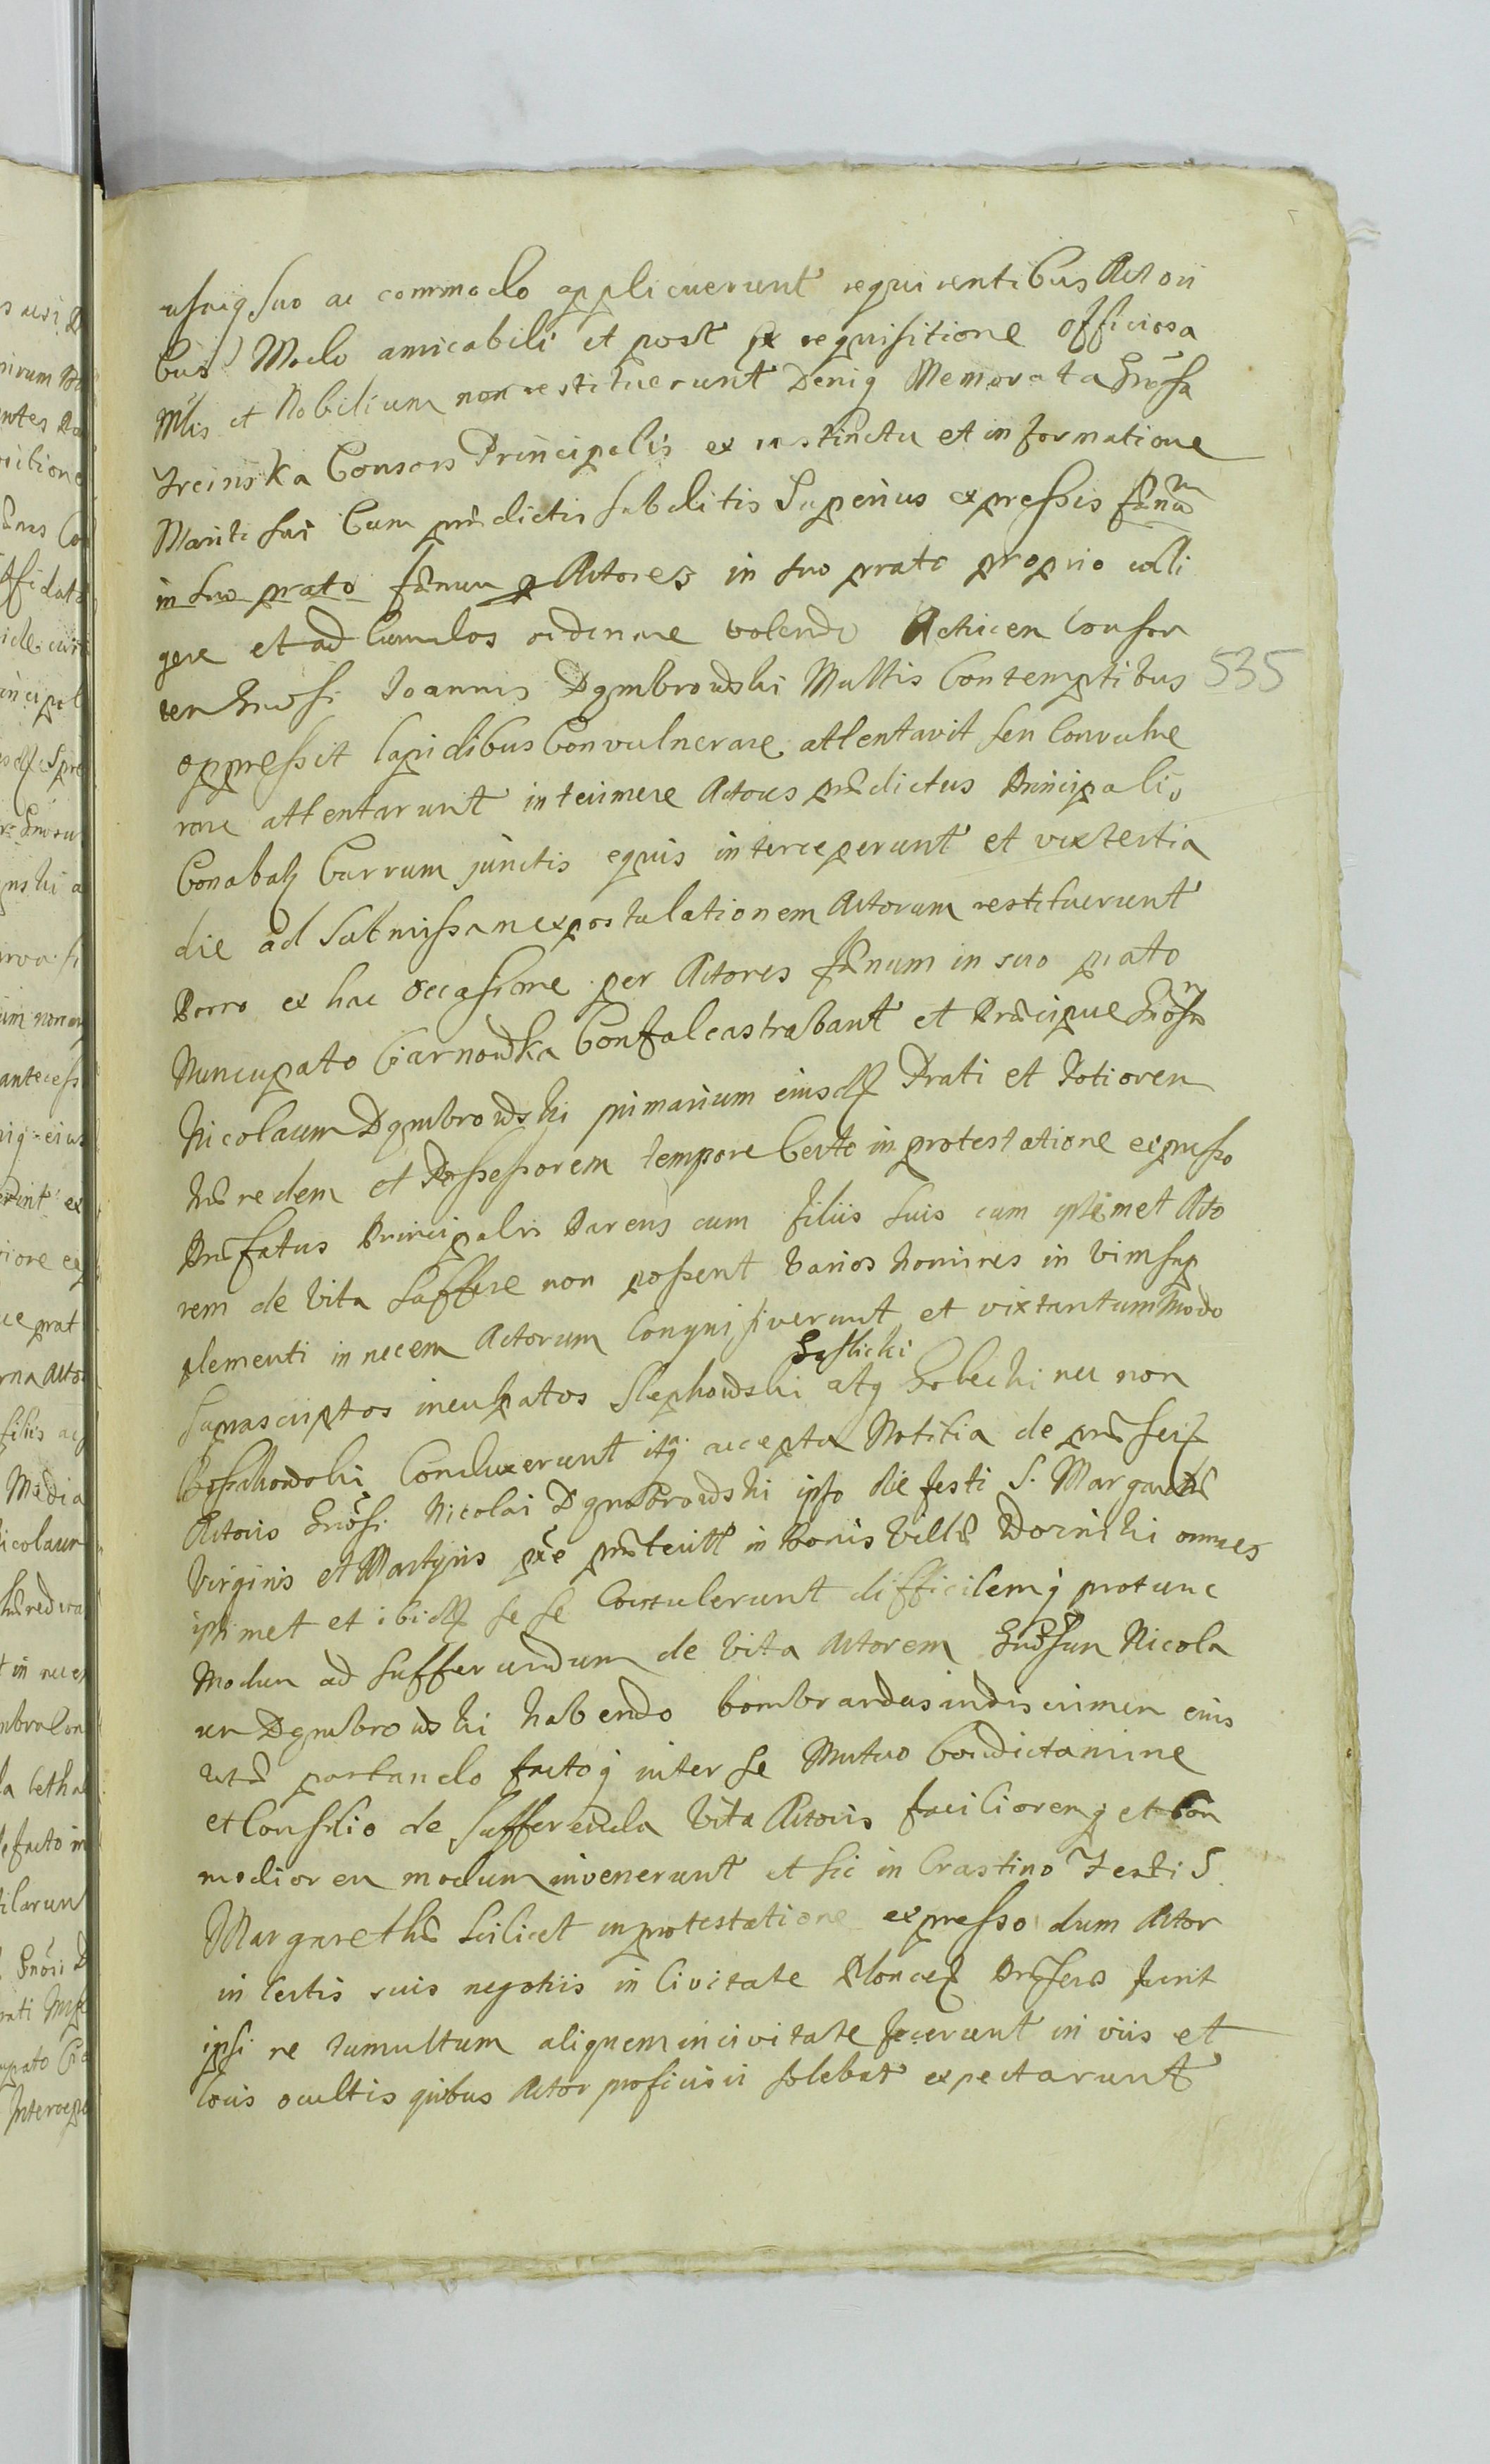 usuiq suo ac commodo applicuerunt requirentibus Actori
bus) Modo amicabili et post ex requisitione officiosa
Mlis et Nobilium non restituerunt Deniq Memorata Gnosa
Consors Principalis ex instinctu et informatione
Mariti sui Cum prædictis subditis Superius expressis fænu
in suo prato fænum Actores in suo prato proprio colli
gere et ad Cumulos ordinare volendo Actricem Consor
tem Gnosi Joannis Dąmbrowski Multis Contemptibus
535
oppressit lapidibus Convulnerare attentavit seu Convulne
rare attentarunt interimere Actores prædictus Principalis
Conabatq Currum junctis equis interceperunt et vix tertia
die ad submissam expostulationem Actorum restituerunt
Porro ex hac occasione per Actores fænum in suo prato
Nuncupato Ciarnowka Confalcastrabant et Præcipue Gnosu
Nicolaum Dąmbrowski primarium eiusdq Prati et Potiorem
hæredem et Possessorem tempore Certo in protestatione expresso
Præfatus Principalis Parens cum filiis suis cum ipsimet Acto
rem de Vita sufferre non possent Varios homines in Vim sup
plementi in necem Actorum Conquisiverunt et vix tantummodo
suprascriptos inculpatos Slephowski atq nec non
Conduxerunt itq accepta Notitia de præsen
Actoris Gnosi Nicolai Dąmbrowski ipso die festi S. Margarethæ
Virginis et Martyris pxe præteritt in Bonis Villæ omnes
ipsimet et ibidq se se Contulerunt difficilemq protunc
Modum ad sufferendum de Vita Actorem Gnosum Nicola
um Dąmbrowski habendo bombardas in discrimen eius
vitæ portando factoq inter se Mutuo Condictamine
et Consilio de Sufferenda Vita Actoris facilioremq et Com
modiorem modum invenerunt et sic in Crastino Festi S.
Margarethæ scilicet in protestatione expresso dum Actor
in Certis suis negotiis in Civitate Plocen Præsens fuit
ipsi ne tumultum aliquem in civitate facerent in viis et
locis ocultis quibus Actor proficisci solebat expectarunt